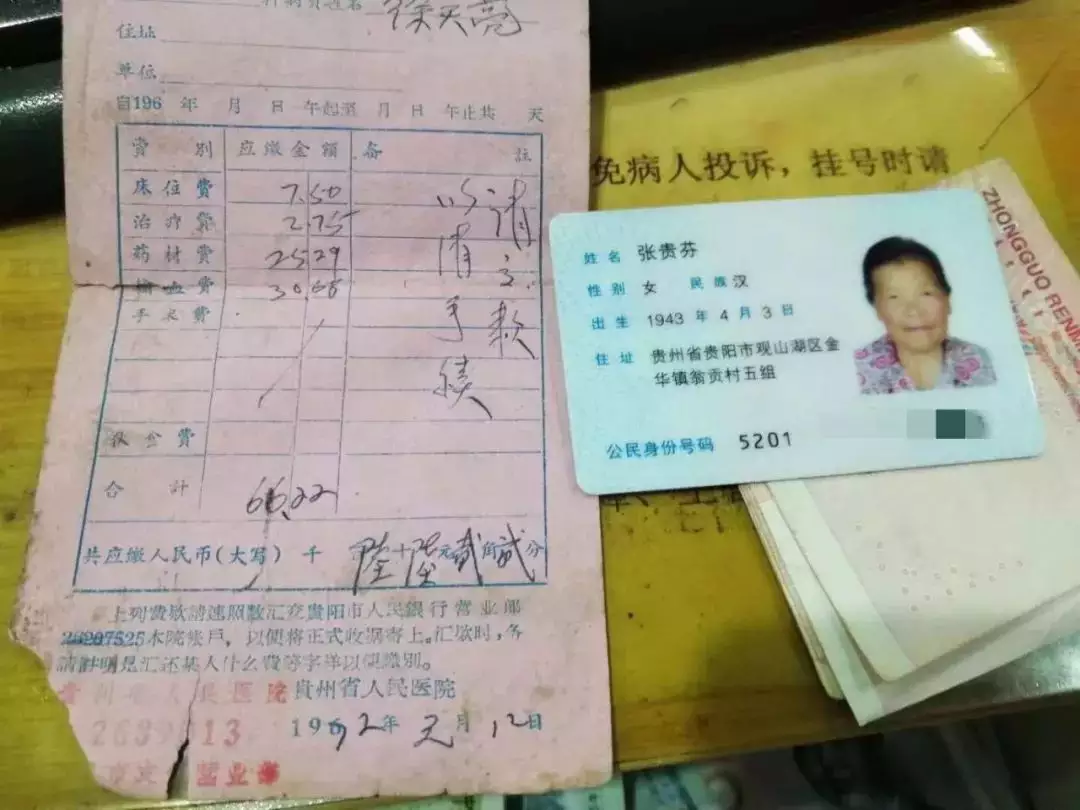 徐天亮
住址
单位
自196 年 月 日 午起至 月 日 午止共 天
费 别 应缴金额 备 註
床位费 7.50
治疗费 2.75
药材费 25.29
输血费 30.68
手术费
合 計 66.22
共应缴人民币(大写) 千 陆十陆元贰角贰分
以清
请
手续
上列费欵請速照数汇交贵阳市人民銀行营业部
本院帐戶，以便将正式收据寄上。汇欵时，务
請註明是汇还某人什么費等字样以便識别。
贵州省人民医院
1962年元月12日
免病人投诉，挂号时请
姓名 张贵芬
性别 女 民族 汉
出生 1943 年 4 月 3 日
住址 贵州省贵阳市观山湖区金
华镇翁贡村五组
公民身份号码 5201
ZHONGGUO RENM